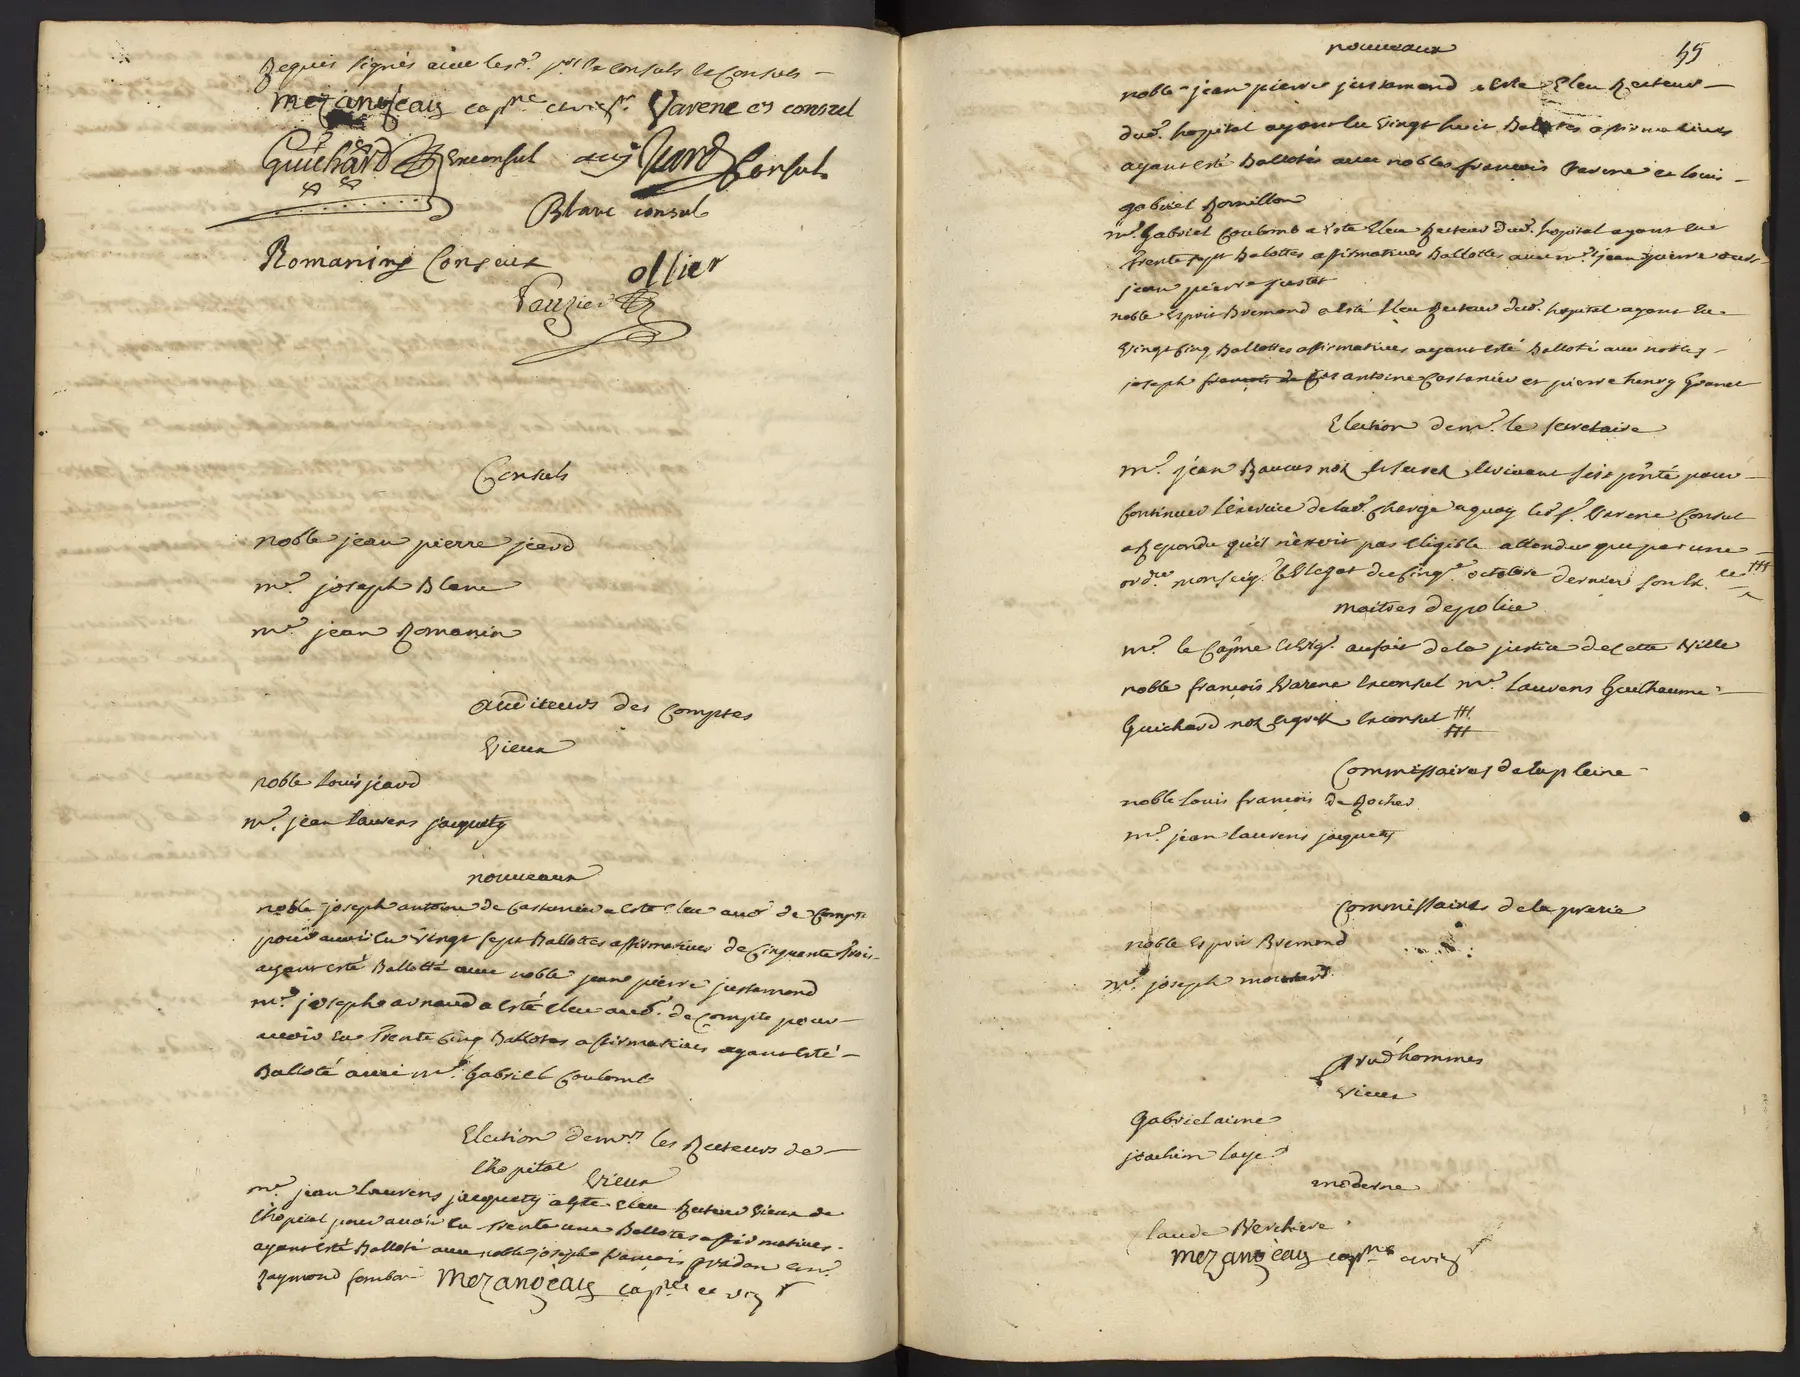 Requis signés avec lesd. srs les consuls ex Consuls
Mezangeau capne et vigr. Varene ex consul
Guichard exconsul Jeard Consul
Blanc consul
Romaning Consul
Ollier
Vauzier
Consuls
noble jean pierre jeard
mre. joseph Blanc
mre. jean Romanin
auditeurs des Comptes
Vieux
noble Louis jeard
mr. jean Laurens jacquety
nouveaux
noble joseph antoine de Castanier a esté Eleu audr de Compte
pour avoir Eu Vingt sept Ballottes affirmatives de Cinquante trois
ayant esté Ballotté avec noble jean pierre justamond
mr. joseph arnaud a esté Eleu audr. de Compte pour
avoir Eu Trente Cinq Ballotes affirmatives ayant esté
Balloté avec mr. Gabriel Coulomb
Election de mrs les Recteurs de
L'hopital Vieux
mr. jean Laurens jacquety a este Eleu Recteur Vieux de
L'hopital pour avoir Eu Trente une Ballotes affirmatives
ayant esté Balloté avec noble joseph francois pradon et mr.
Raymond
Mezangeau capne et vigr
nouveaux
noble jean pierre justamond a Esté Eleu Recteur
dud. hopital ayant Eu Vingt huit Balottes affirmatives
ayant esté Ballotés avec nobles francois Varene et Louis
gabriel Rornillon
mr. Gabriel Coulomb a Esté Eleu Recteur dud. hopital ayant Eu
Trente sept Balottes affirmatives Ballottés avec mr. jean pierre
jean pierre justet
noble Esprit Bremond a Esté Eleu Recteur dud. hopital ayant Eu
Vingt Cinq Ballottes affirmatives ayant esté Balloté avec nobles
joseph francois de antoine Castanier et pierre henry Granet
Election de mr. le secretaire
mr. jean Baucus not. et secret. Ecrivant s'est pnté pour
Continuer L'exercice de lad. Charge a quoy led. sr. Varene Consul
a Repondu qu'il n'estoit pas eligible attendu que par une
ordce monseigr. le Vlegat du Cinqe. octobre dernier
maitres de police
mr. le Capne et Vigr. au fait de la justice de Cette Ville
noble françois Varene Exconsul mr. Laurens Guilhaume
Guichard not. Exconsul
Commissaires de la pleine
noble Louis francois de Rocher
mr. jean Laurens jacquety
Commissaires de la prerie
noble Esprit Bremond
mr. joseph moutard
Prud'hommes
Vieux
Gabriel aime
joachim Laye
moderne
Claude Verchiere
Mezangeau capne et vigr